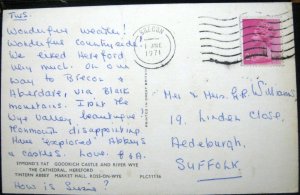 Tues.
Wonderful weather!
Wonderful countryside!
We liked Hereford
very much. On our
way to Brecon &
Aberdare, via Black
mountains. I put the
Wye Valley beautiful:
Monmouth disappointing.
Have "explored" Abbeys
& Castles. Love. 
How is Susie?
SYMOND'S YAT GOODRICH CASTLE AND RIVER WYE
THE CATHEDRAL, HEREFORD
TINTERN ABBEY MARKET HALL, ROSS-ON-WYE
PLC11136
BRECON
1 JUNE
1971
Mr & Mrs. G.R. Willson
19, Linden Close,
Aldeburgh,
SUFFOLK